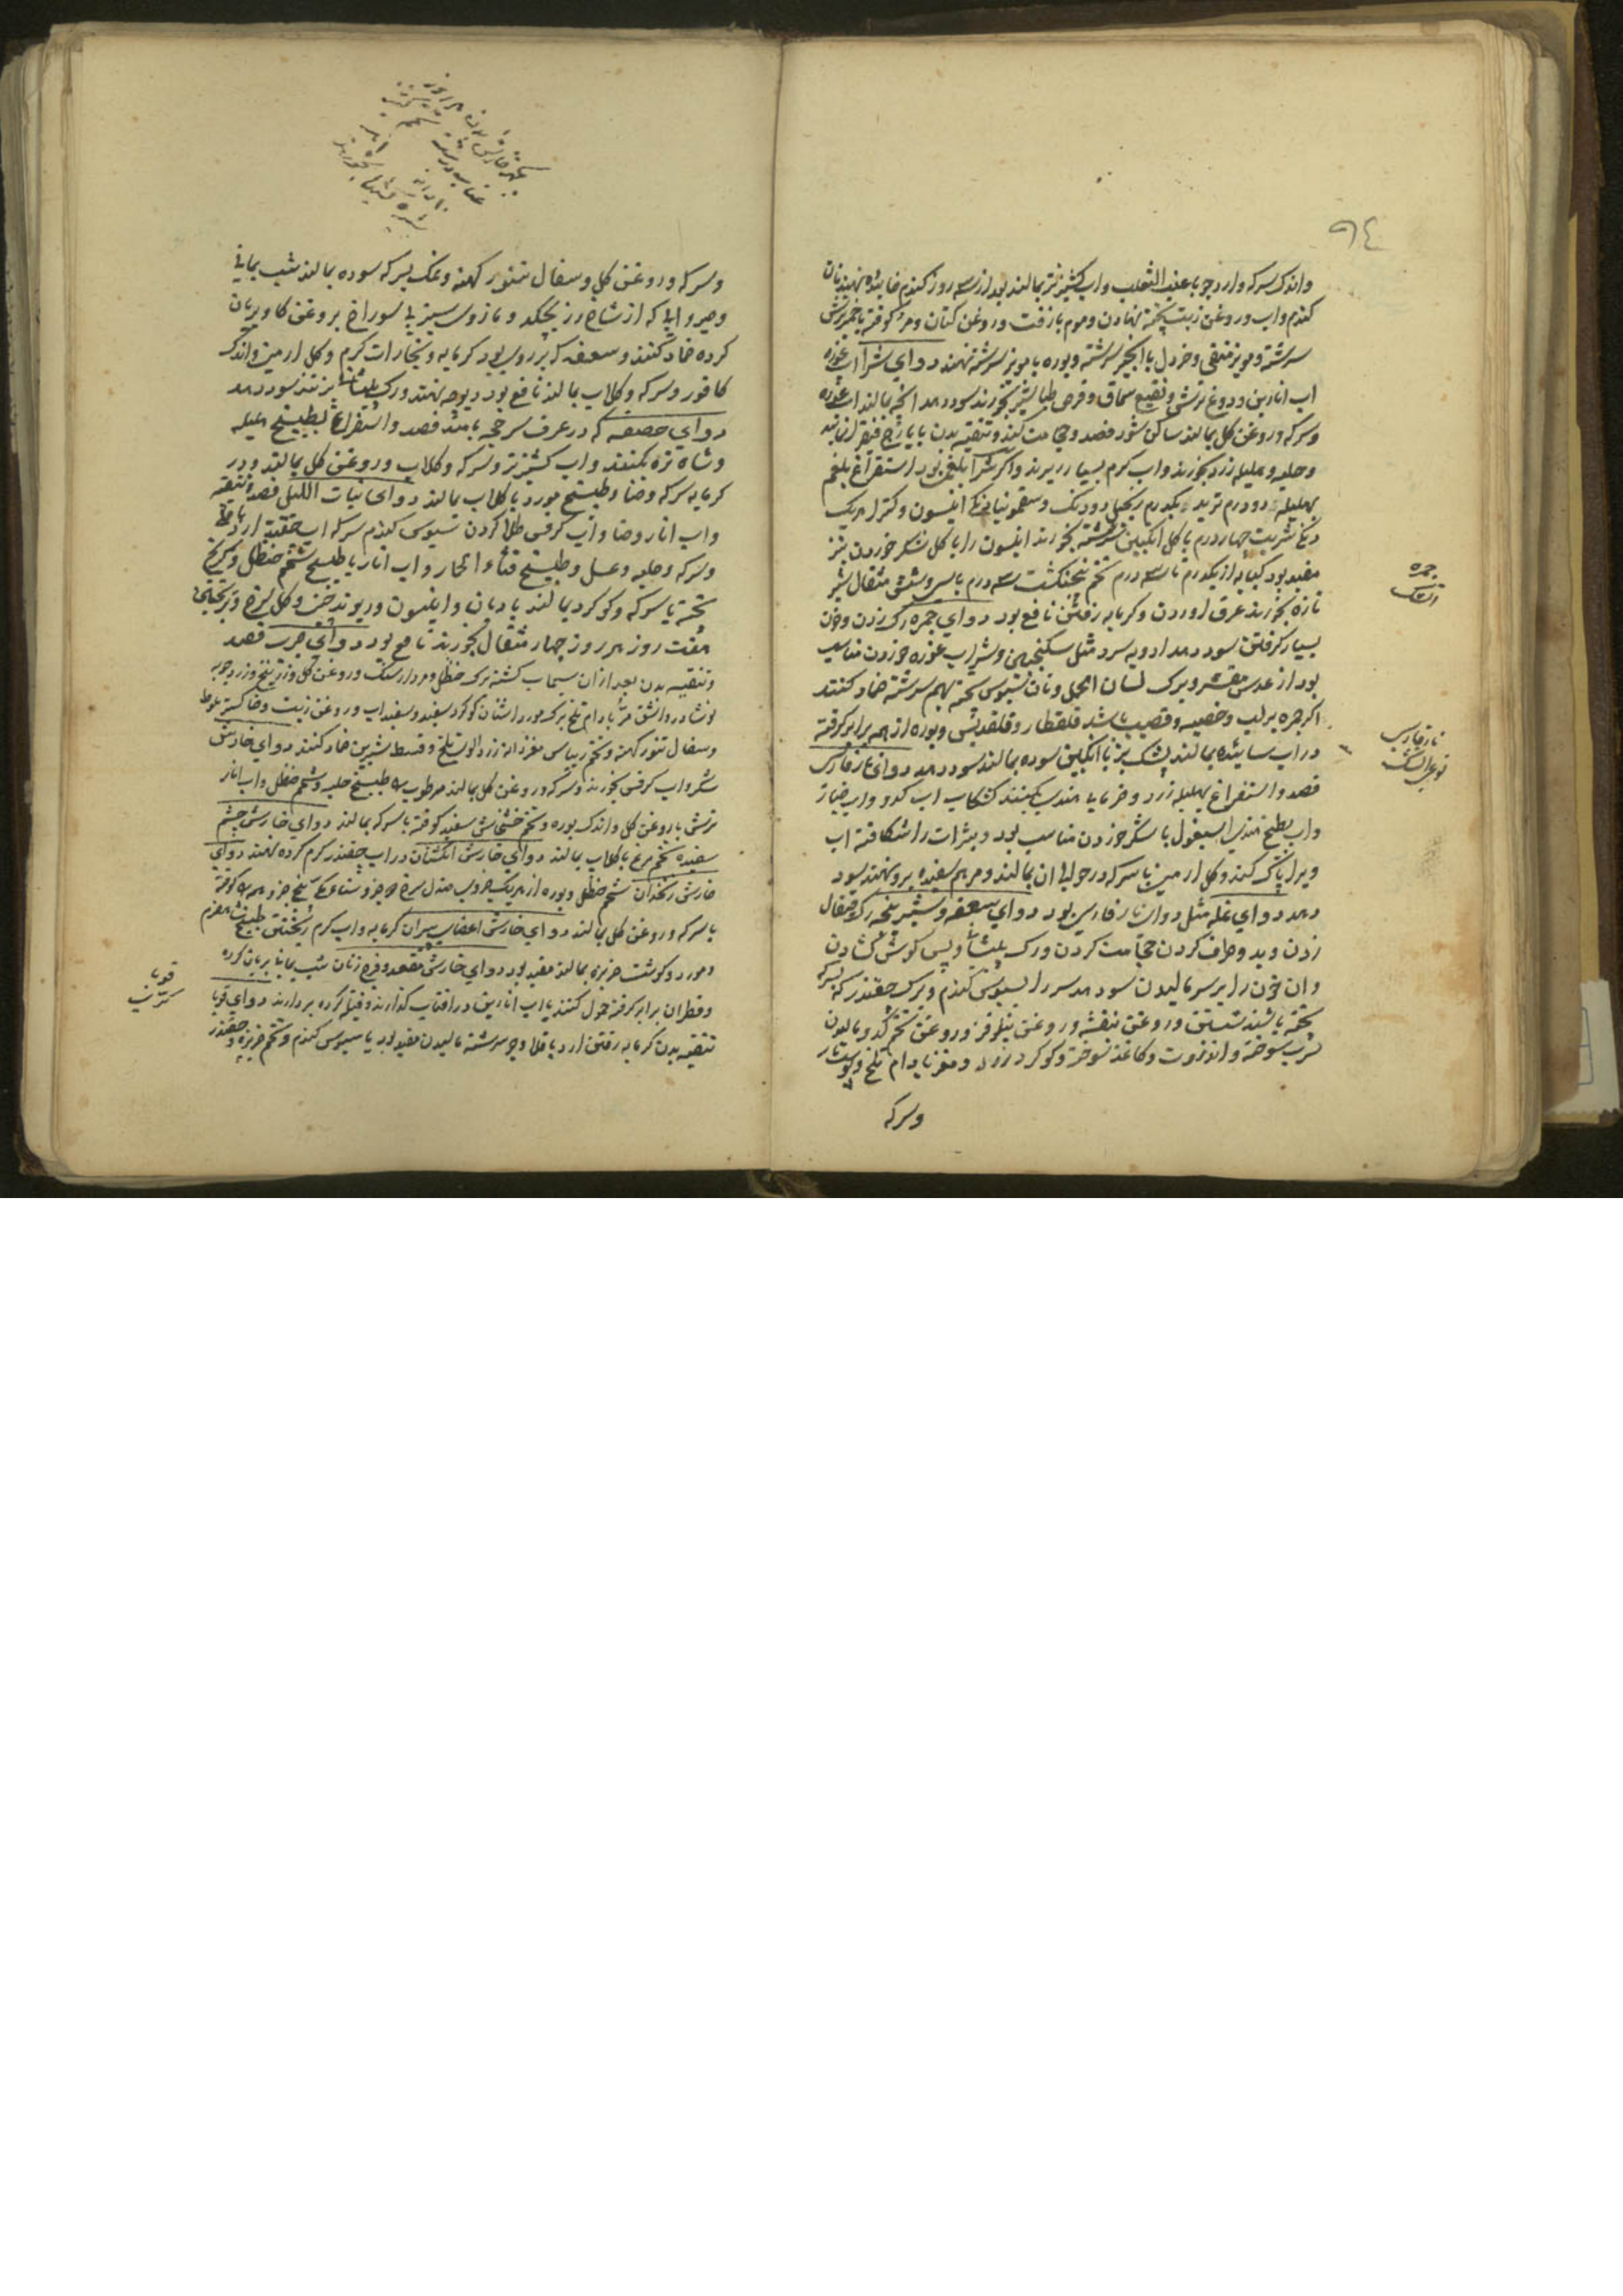 ٩٤
واندک سرکه وارد جو با عنب الثعلب واب کشنیز تر بمالند بعد از سه روز کندم خاییده نهند نان
کندم واب وروغن زیت پخته نهادن وموم با زفت وروغن کتان ومر کوفته با خمیر ترش
سرشته ومویز منقی وخردل با انجیر سرشته وبوره با مویز سرشته نهند دوای شرا اب غوره
اب انارین ودوغ ترش ونقیع سماق وقرص طباشیر بخورند سود دهد انچه بمالند اب غوره
وسرکه وروغن کل بمالند ساکن شود فصد وحجامت کنند وتنقیه بدن با یارج فیقرا نمایند
وحلبه وهلیله زرد بخورند واب کرم بسیار ریزند واکر شرا بلغمی بود استفراغ بلغم
بهلیله دو درم تربد یکدرم زنجبیل دو دنک وسقمونیا انیسون وکتیرا هر یک
شربت چهار درم با کل انکبین سرشته بخورند انیسون را با کل شکر خوردن نیز
مفید بود کبابه از یکدرم تا سه درم تخم پنجنکشت سه درم با سی وشش مثقال شیر
تازه بخورند عرق اوردن وکرمابه رفتن نافع بود دوای جمره رک زدن وخون
بسیار کرفتن سود دهد ادویه سرد مثل سکنجبین وشراب غوره خوردن مناسب
بود از عدس مقشر وبرک لسان الحمل ونان سبوس پخته بهم سرشته ضماد کنند
اکر جمره بر لب وخصیه وقضیب باشد قلقطار وقلقدیس وبوره از همه برابر کرفته
در اب ساییده بمالند پشک بز با انکبین سوده بمالند سود دهد دوای نار فارسی
فصد واستفراغ بهلیله زرد وخرمای هندی کنند کشکاب اب کدو واب خیار
واب بطیخ هندی اسبغول با شکر خوردن مناسب بود وبثرات را شکافته اب
ویرا پاک کنند وکل ارمین با سرکه در حوالی ان بمالند ومرهم سفیده برو نهند سود
دهد دوای نمله مثل دوای نار فارسی بود دوای سعفه وشیرینجه رک قیفال
زدن وبدو طرف کردن حجامت کردن ورک پیشانی وپس کوش کشادن
وان خون را بر سر مالیدن سود دهد سر را بسبوس کندم وبرک چقندر که بسرکه
پخته باشند شستن وروغن بنفشه وروغن نیلوفر وروغن تخم کدو مالیدن
سرب سوخته وانزروت وکاغذ سوخته وکوکرد زرد ومغز بادام تلخ وپوست انار
وسرکه
جمره
اتشک
نار فارسی
نوعی اتشک
وسرکه وروغن کل وسفال تنور کهنه ونمک بسرکه سوده بمالند شب یمانی
که از شاخ رز بچکد ومازوی سبز بی سوراخ بروغن کاو بریان
کرده ضماد کنند وسعفه که بر روی بود کرمابه وبخارات کرم وکل ارمین واندک
کافور وسرکه وکلاب بمالند نافع بود دیوچه نهند ورک پیشانی بزنند سود دهد
دوای حصف که در عرف سرخجه نامند فصد واستفراغ بطبیخ هلیله
وشاه تره بکنند واب کشنیز تر وسرکه وکلاب وروغن کل بمالند ودر
کرمابه سرکه وحنا وطبیخ مورد با کلاب بمالند دوای نبات اللیل فصد وتنقیه
واب انار وحنا واب کرفس طلا کردن سبوس کندم سرکه اب چقندر ارد باقلی
وسرکه وحلبه وعسل وطبیخ قثاء الحمار واب انار یا طبیخ شحم حنظل وکبریخ
پخته با سرکه وکوکرد بمالند بادیان وانیسون وریوند چینی وکل سرخ
هفت روز هر روز چهار مثقال بخورند نافع بود دوای جرب فصد
وتنقیه بدن بعد از ان سیماب کشته برک حنظل ومردارسنک وروغن کل وزرنیخ وزردچوبه
نوشادر واشق مر بادام تلخ برک مورد اشنان کوکرد سفید وسفیداب وروغن زیت وخاکستر بلوط
وسفال تنور کهنه وتخم ریباس مغز دانه زردالو تلخ وقسط شیرین ضماد کنند دوای خارش
شکر واب کرفس بخورند وسرکه وروغن کل بمالند مرطوب را طبیخ حلبه وشحم حنظل واب انار
ترش با روغن کل واندک بوره وتخم خشخاش سفید کوفته با سرکه بمالند دوای خارش چشم
سفیده تخم مرغ با کلاب بمالند دوای خارش انکشتان در اب چقندر کرم کرده نهند دوای
خارش زنخدان شحم حنظل وبوره از هر یک جزوی صندل سرخ دو جزو پنج جزو همه را کوفته
با سرکه وروغن کل بمالند دوای خارش اعضای پیران کرمابه واب کرم ریختن طبیخ شلغم
ومورد وکوشت خربزه بمالند مفید بود دوای خارش مقعد وفرج زنان شب یمانی بریان کرده
وقطران برابر کرفته حمول کنند یا اب انارین در افتاب کذارند وفتیله کرده بردارند دوای قوبا
تنقیه بدن کرمابه رفتن ارد باقلا وجو سرشته مالیدن مفید بود یا سبوس کندم وتخم خربزه وچقندر
قوبا